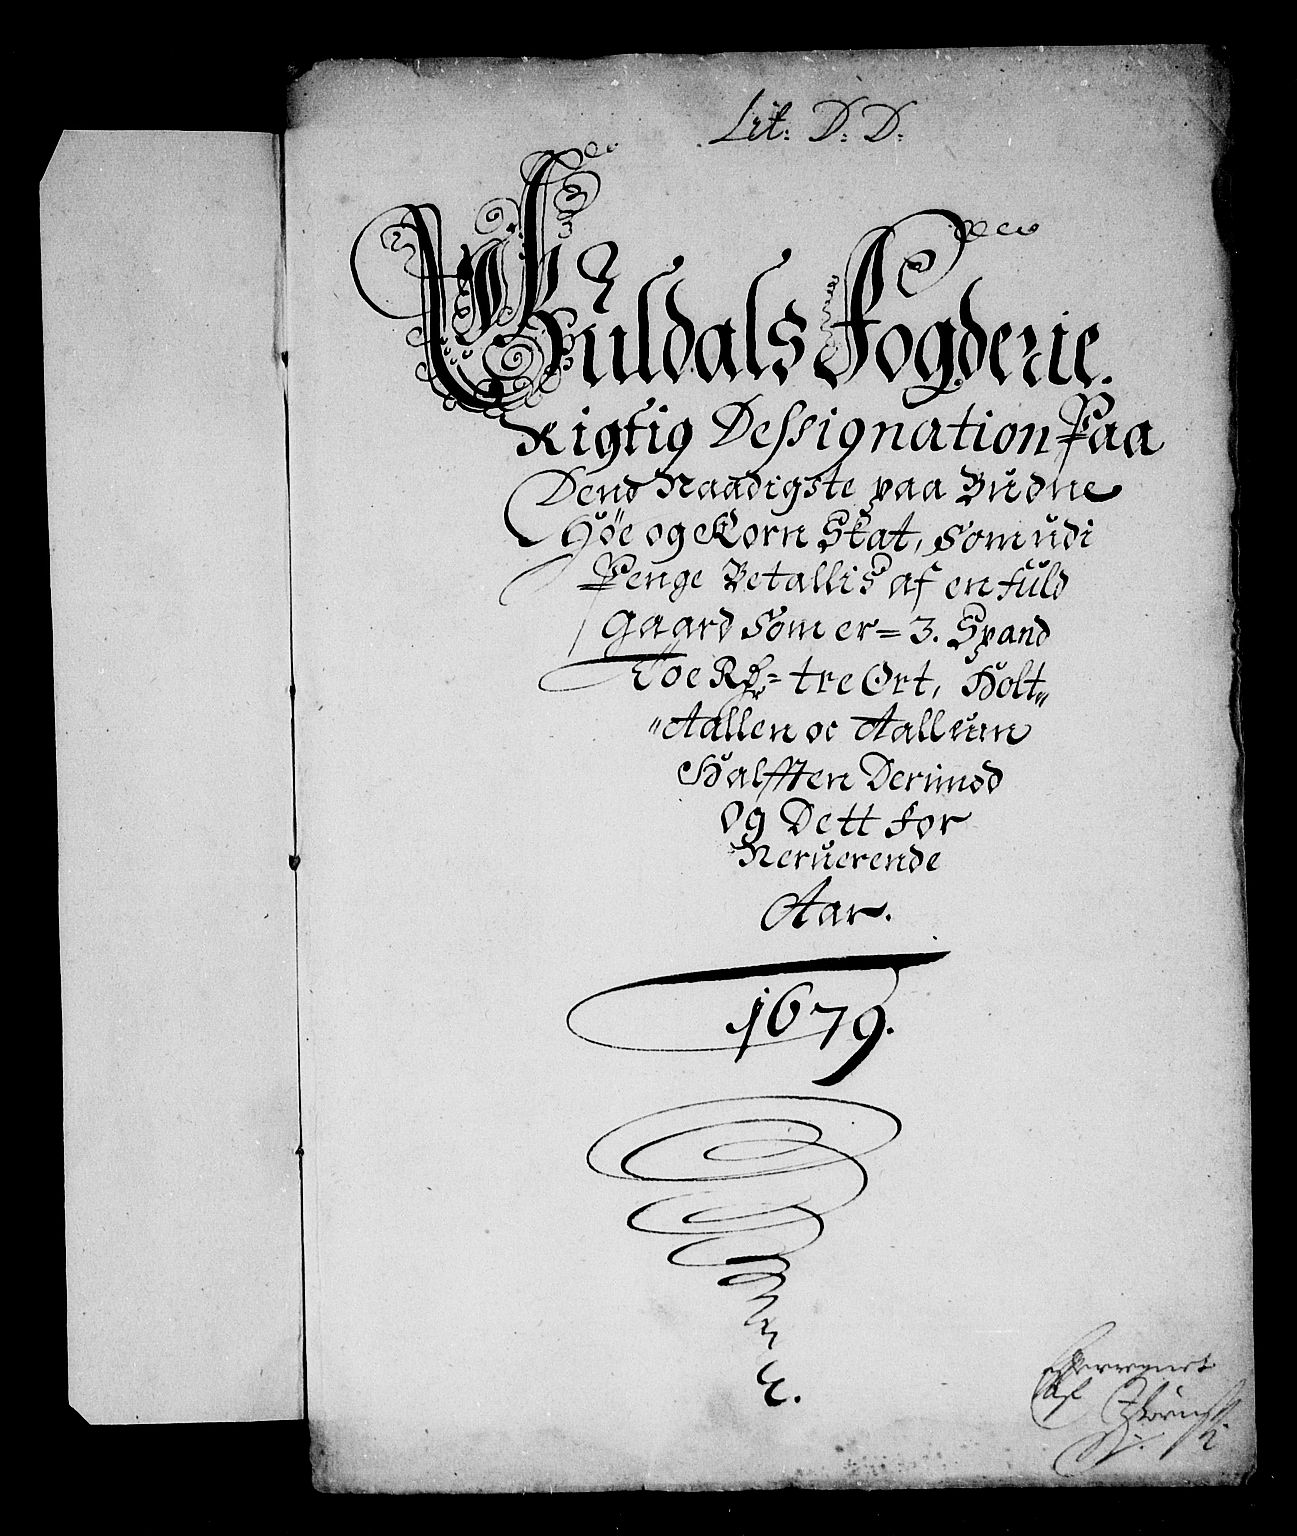 Lit: D: D:
Guldals Fogderie.
Rigtig Dessignation Paa
Dend Naadigste paa Budne
Höe og Korn Skat, som udi
Penge Betallis af en fuld
Gaard som er = 3. Spand
Toe Rdr = tre Ort, Holt„
„Aallen oc Aalleun
Halfften Derimod
og Dett for
Neruerende
Aar.
1679.